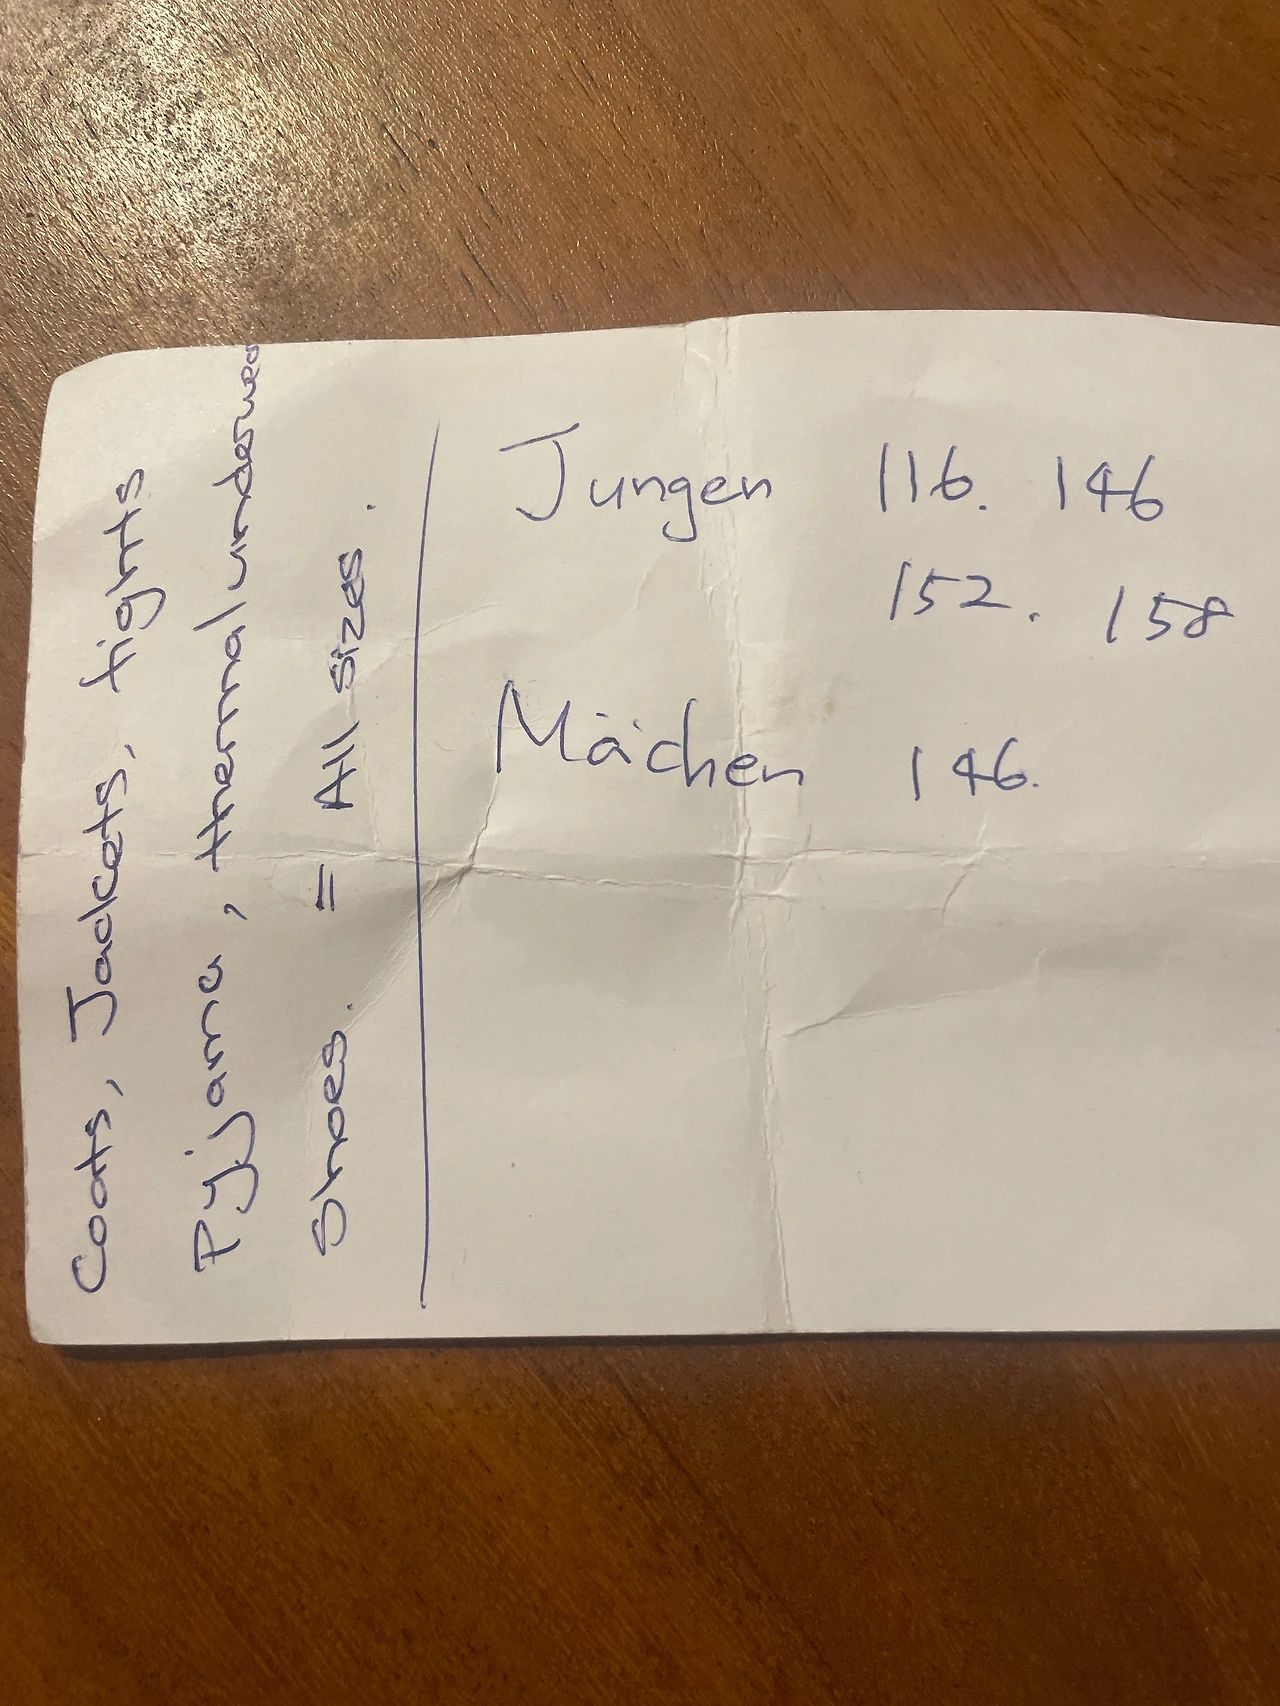 Coats, Jackets, tights
Pyjama, thermal underwea
Shoes. = All sizes.
Jungen 116. 146
152. 158
Mächen 146.